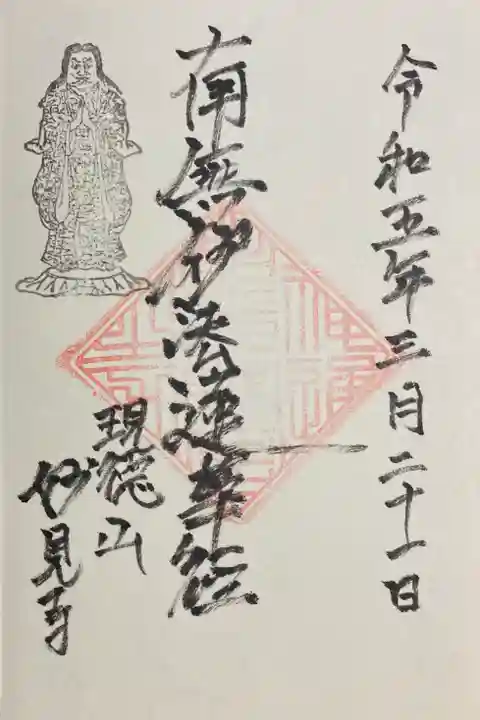 令和五年三月二十一日
南無妙法蓮華経
現徳山
妙見寺